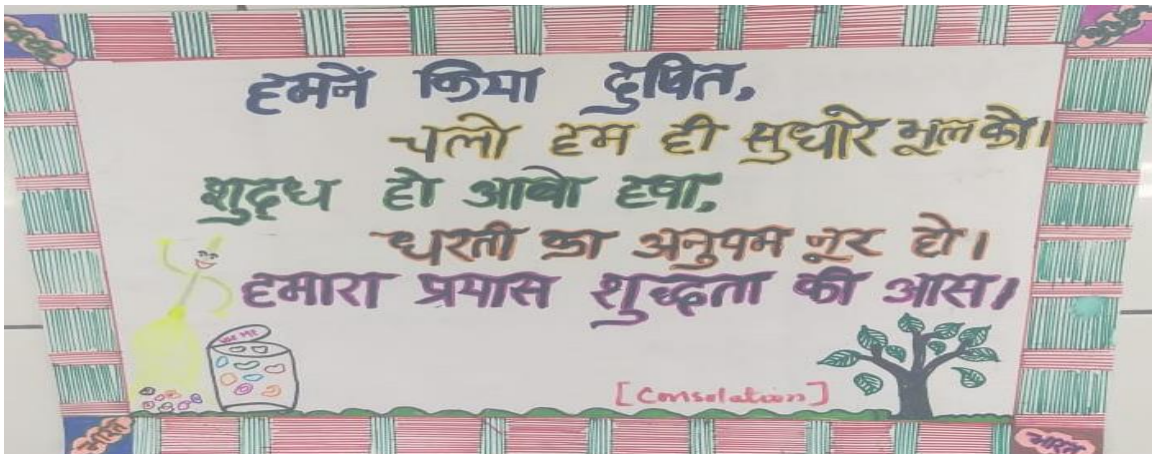 हमनें किया दुषित,
चलो हम ही सुधारे भूल को।
शुद्ध हो आबो हवा,
धरती का अनुपम नूर हो।
हमारा प्रयास शुद्धता की आस।
USE ME
[Consolation]
भारत